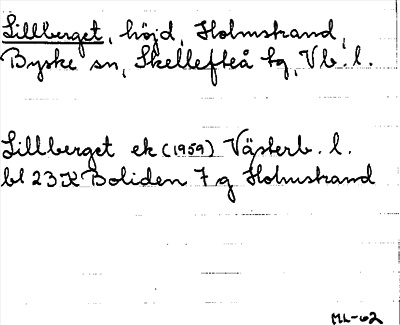 Lillberget, höjd, Holmstrand,
Byske sn, Skellefteå tg, Vb. l.
Lillberget ek (1959) Västerb. l.
bl 23K Boliden 7 g Holmstrand
ML-62